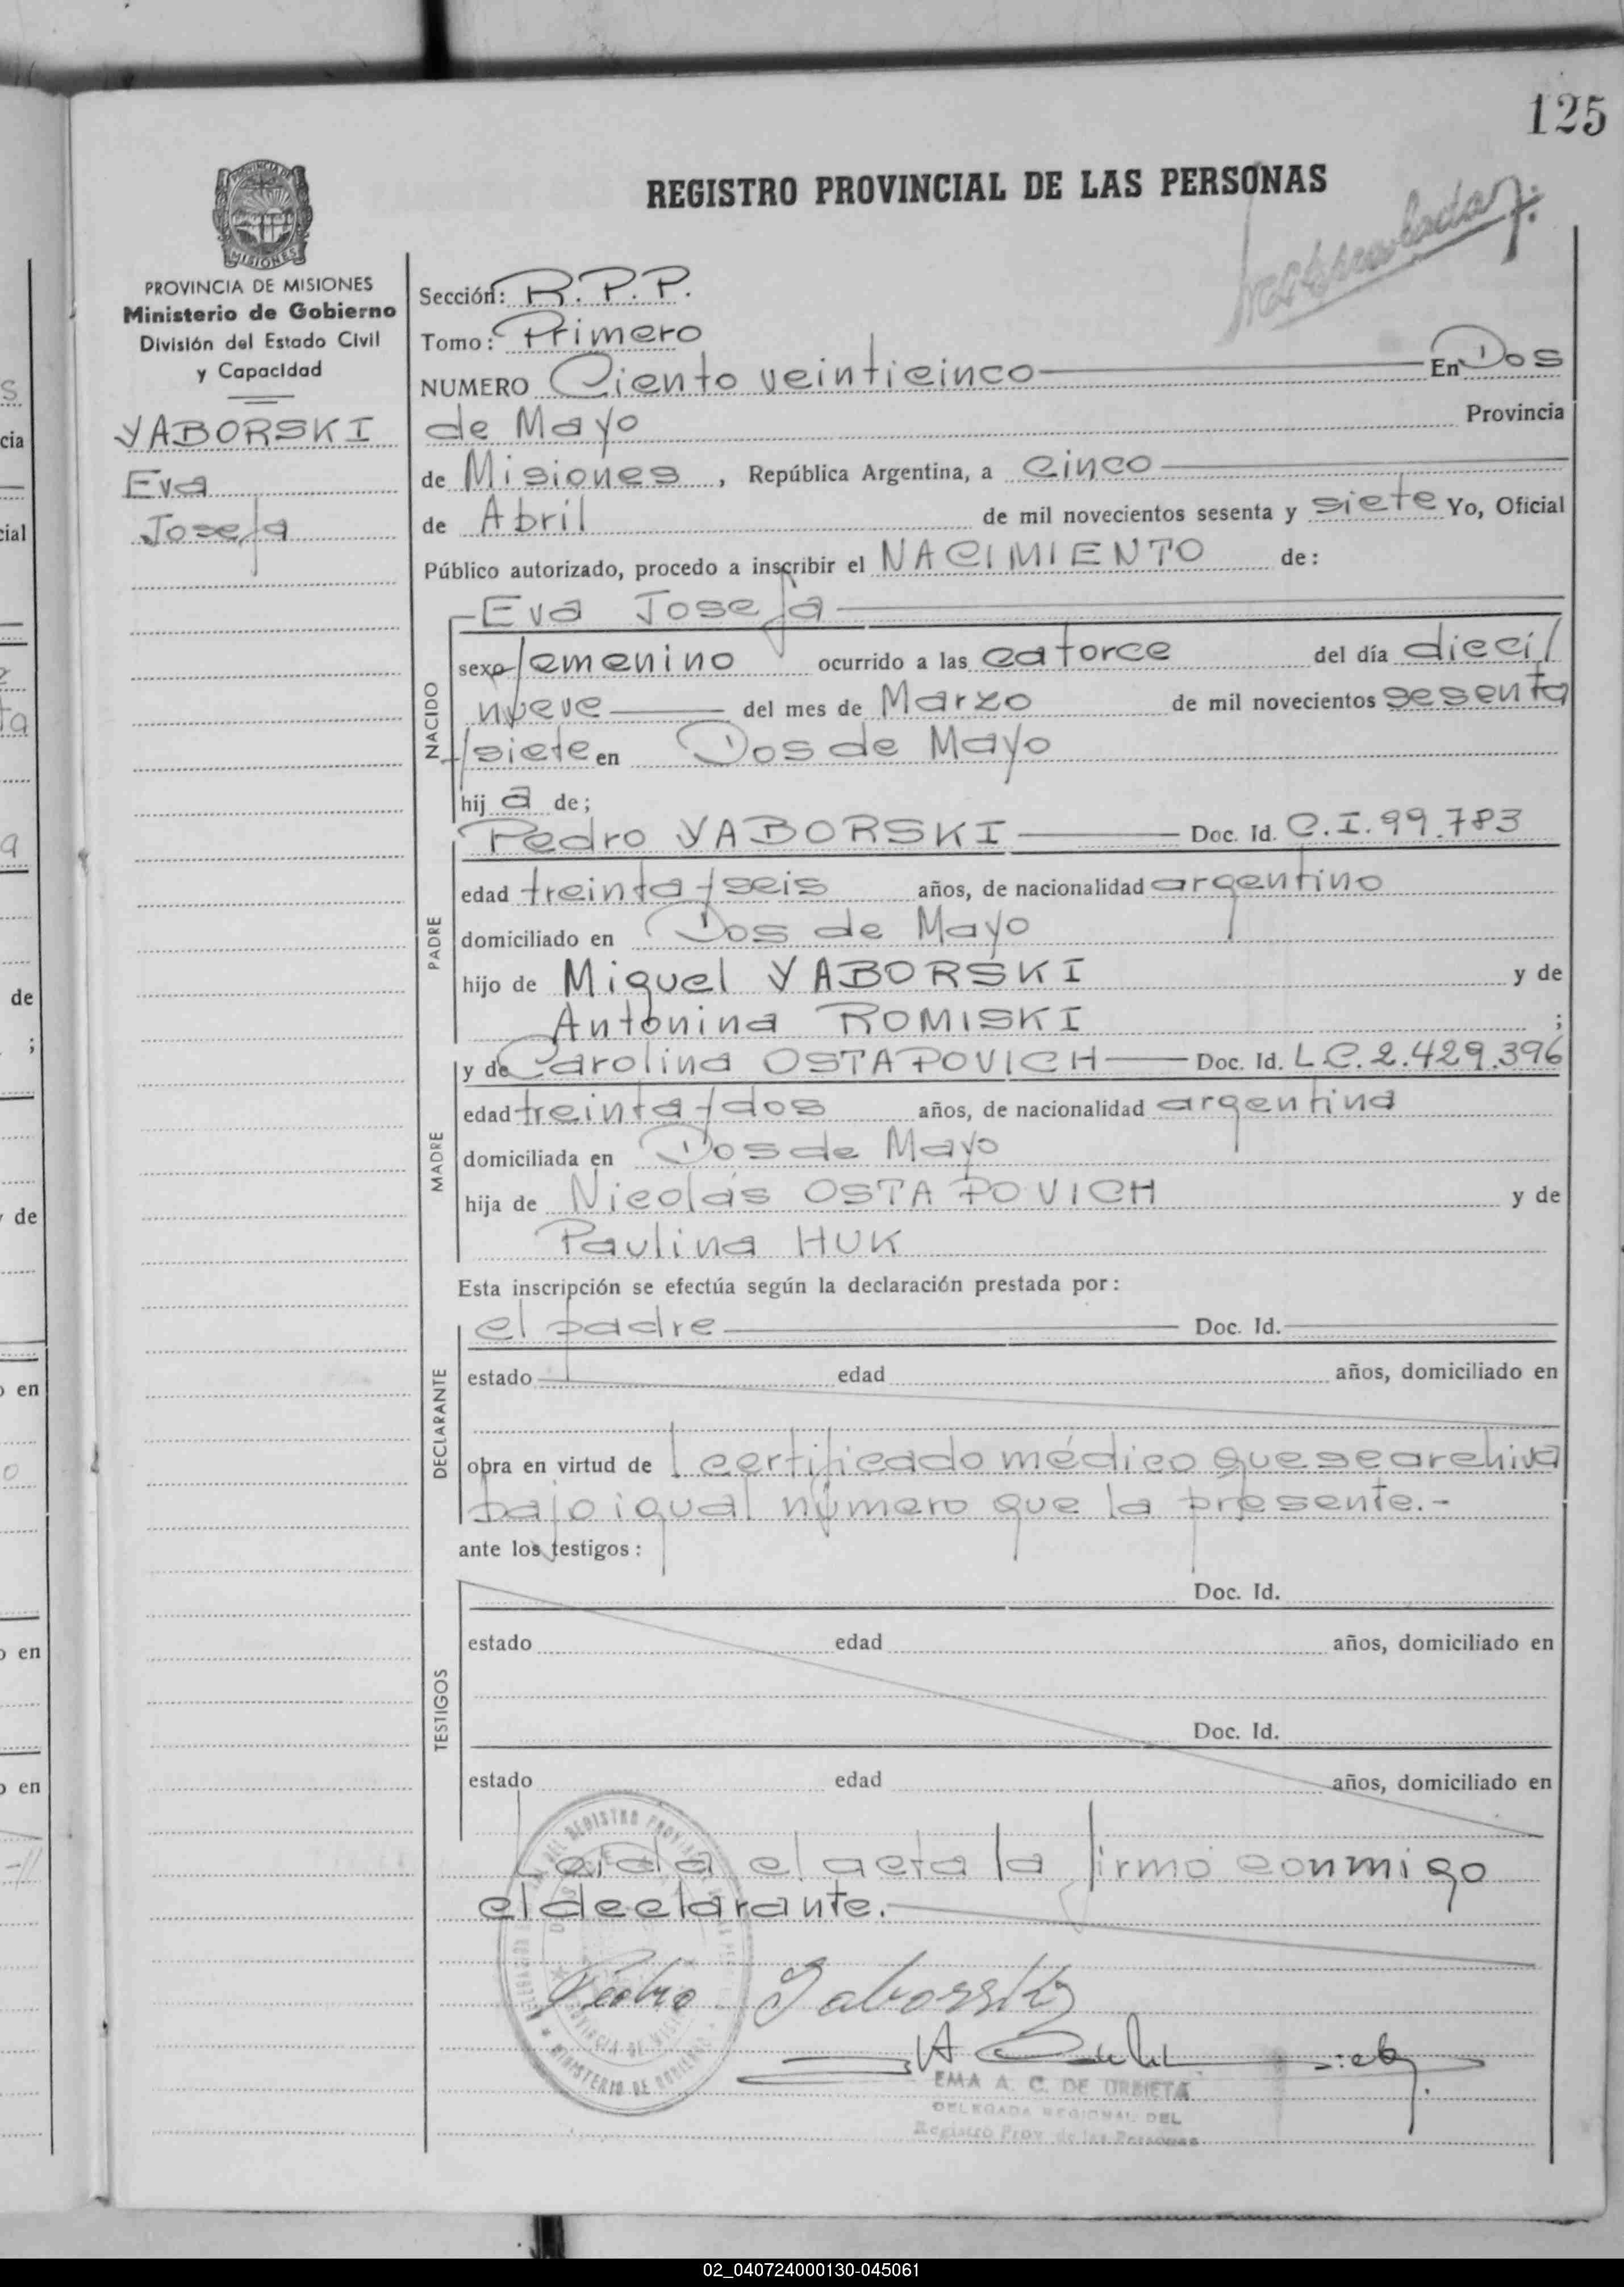 125
REGISTRO PROVINCIAL DE LAS PERSONAS
PROVINCIA DE MISIONES
Ministerio de Gobierno
División del Estado Civil
y Capacidad
YABORSKI
Eva
Josefa
Sección: R.P.P.
Tomo: Primero
NUMERO Ciento veinticinco En Dos
de Mayo Provincia
de Misiones, República Argentina, a cinco
de Abril de mil novecientos sesenta y siete Yo, Oficial
Público autorizado, procedo a inscribir el NACIMIENTO de:
NACIDO
Eva Josefa
sexo femenino ocurrido a las catorce del día dieci/
nueve del mes de Marzo de mil novecientos sesenta
y siete en Dos de Mayo
hij a de;
PADRE
Pedro YABORSKI Doc. Id. C.I. 99.783
edad treinta y seis años, de nacionalidad argentino
domiciliado en Dos de Mayo
hijo de Miguel YABORSKI y de
Antonina ROMISKI ;
MADRE
y de Carolina OSTAPOVICH Doc. Id. L.C. 2.429.396
edad treinta y dos años, de nacionalidad argentina
domiciliada en Dos de Mayo
hija de Nicolás OSTAPOVICH y de
Paulina HUK
Esta inscripción se efectúa según la declaración prestada por:
DECLARANTE
el padre Doc. Id.
estado edad años, domiciliado en
obra en virtud de l certificado médico que se archiva
bajo igual número que la presente.-
ante los testigos:
TESTIGOS
Doc. Id.
estado edad años, domiciliado en
Doc. Id.
estado edad años, domiciliado en
Leida el acta la firmó conmigo
el declarante.
Pedro Yaborski
EMA A. C. DE URBIETA
DELEGADA REGIONAL DEL
Registro Prov. de las Personas
02_040724000130-045061